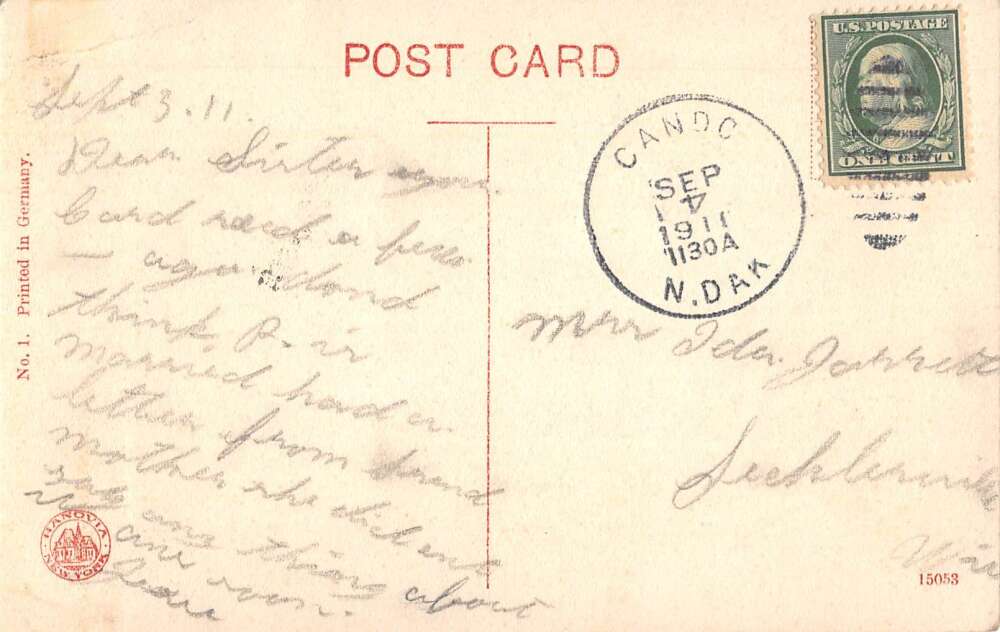 POST CARD
U.S. POSTAGE
ONE CENT
CANDO
SEP
4
1911
1130A
N. DAK
Sept 3. 11.
Dear Sister your
Card recd a few
ago dond
think R. is
married had a
letter from
mother she did ent
say any thing about
soon.
Mrs Ida Jarrett
Sechlerville
Wis
No. 1. Printed in Germany.
HANOVIA
NEW YORK
15053